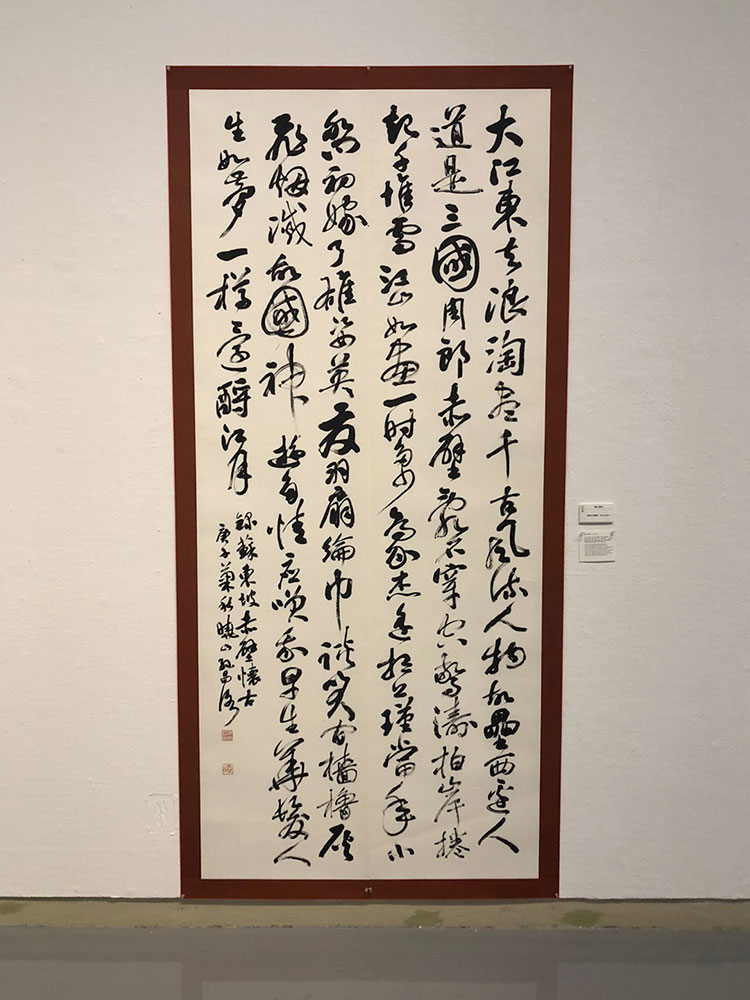 大江東去浪淘盡千古風流人物故壘西邊人
道是三國周郎赤壁亂石穿空驚濤拍岸捲
起千堆雪江山如畫一時多少豪傑遙想公瑾當年小
喬初嫁了雄姿英發羽扇綸巾談笑間檣櫓灰
飛烟滅故國神遊多情應笑我早生華髮人
生如夢一樽還酹江月
錄蘇東坡赤壁懷古
庚子菊秋曉山孫昌